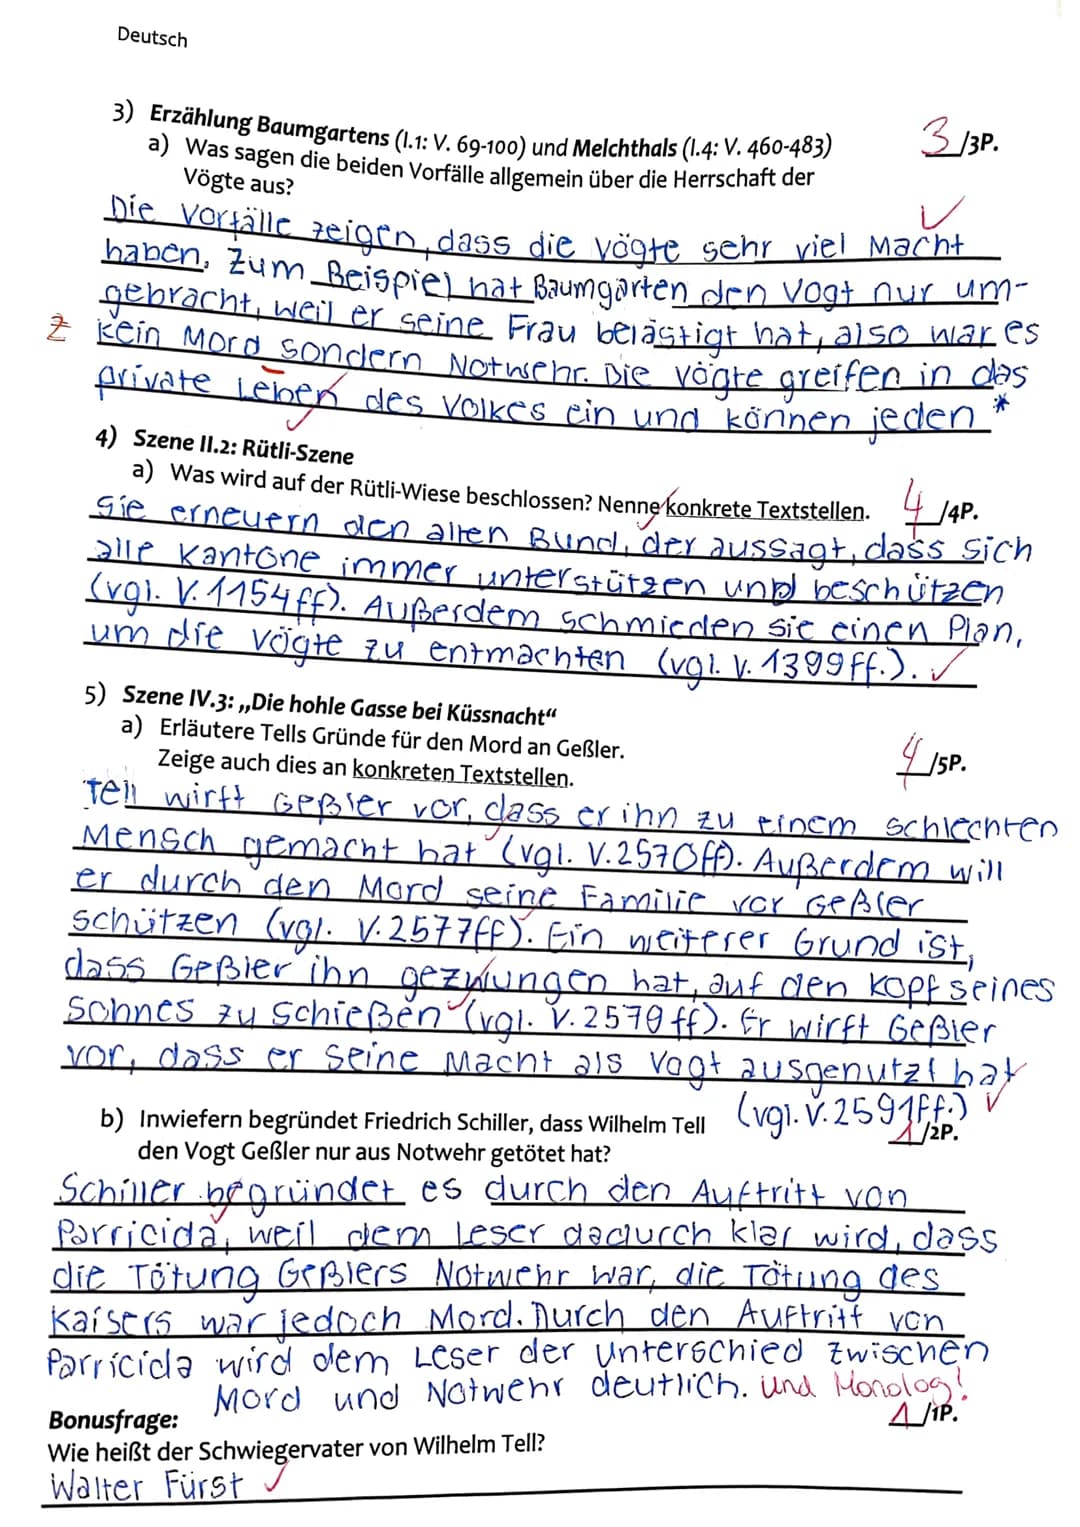 Deutsch
3) Erzählung Baumgartens (I.1: V. 69-100) und Melchthals (I.4: V. 460-483)
3 /3P.
a) Was sagen die beiden Vorfälle allgemein über die Herrschaft der
Vögte aus?
Die Vorfälle zeigen, dass die Vögte sehr viel Macht
haben. Zum Beispiel hat Baumgarten den Vogt nur um-
gebracht, weil er seine Frau belästigt hat, also war es
Z kein Mord sondern Notwehr. Die Vögte greifen in das
private Leben des Volkes ein und können jeden *
4) Szene II.2: Rütli-Szene
a) Was wird auf der Rütli-Wiese beschlossen? Nenne konkrete Textstellen.
4 /4P.
Sie erneuern den alten Bund, der aussagt, dass sich
alle Kantone immer unterstützen und beschützen
(vgl. V. 1154ff). Außerdem schmieden sie einen Plan,
um die Vögte zu entmachten (vgl. V. 1399ff.).
5) Szene IV.3: „Die hohle Gasse bei Küssnacht“
a) Erläutere Tells Gründe für den Mord an Geßler.
Zeige auch dies an konkreten Textstellen.
4 /5P.
Tell wirft Geßler vor, dass er ihn zu einem schlechten
Mensch gemacht hat (vgl. V. 2570ff). Außerdem will
er durch den Mord seine Familie vor Geßler
schützen (vgl. V. 2577ff). Ein weiterer Grund ist,
dass Geßler ihn gezwungen hat, auf den Kopf seines
Sohnes zu schießen (vgl. V. 2579ff). Er wirft Geßler
vor, dass er seine Macht als Vogt ausgenutzt hat
(vgl. V. 2591ff.)
b) Inwiefern begründet Friedrich Schiller, dass Wilhelm Tell
1 /2P.
den Vogt Geßler nur aus Notwehr getötet hat?
Schiller begründet es durch den Auftritt von
Parricida, weil dem Leser dadurch klar wird, dass
die Tötung Geßlers Notwehr war, die Tötung des
Kaisers war jedoch Mord. Durch den Auftritt von
Parricida wird dem Leser der Unterschied zwischen
Mord und Notwehr deutlich. und Monolog!
Bonusfrage:
1 /1P.
Wie heißt der Schwiegervater von Wilhelm Tell?
Walter Fürst